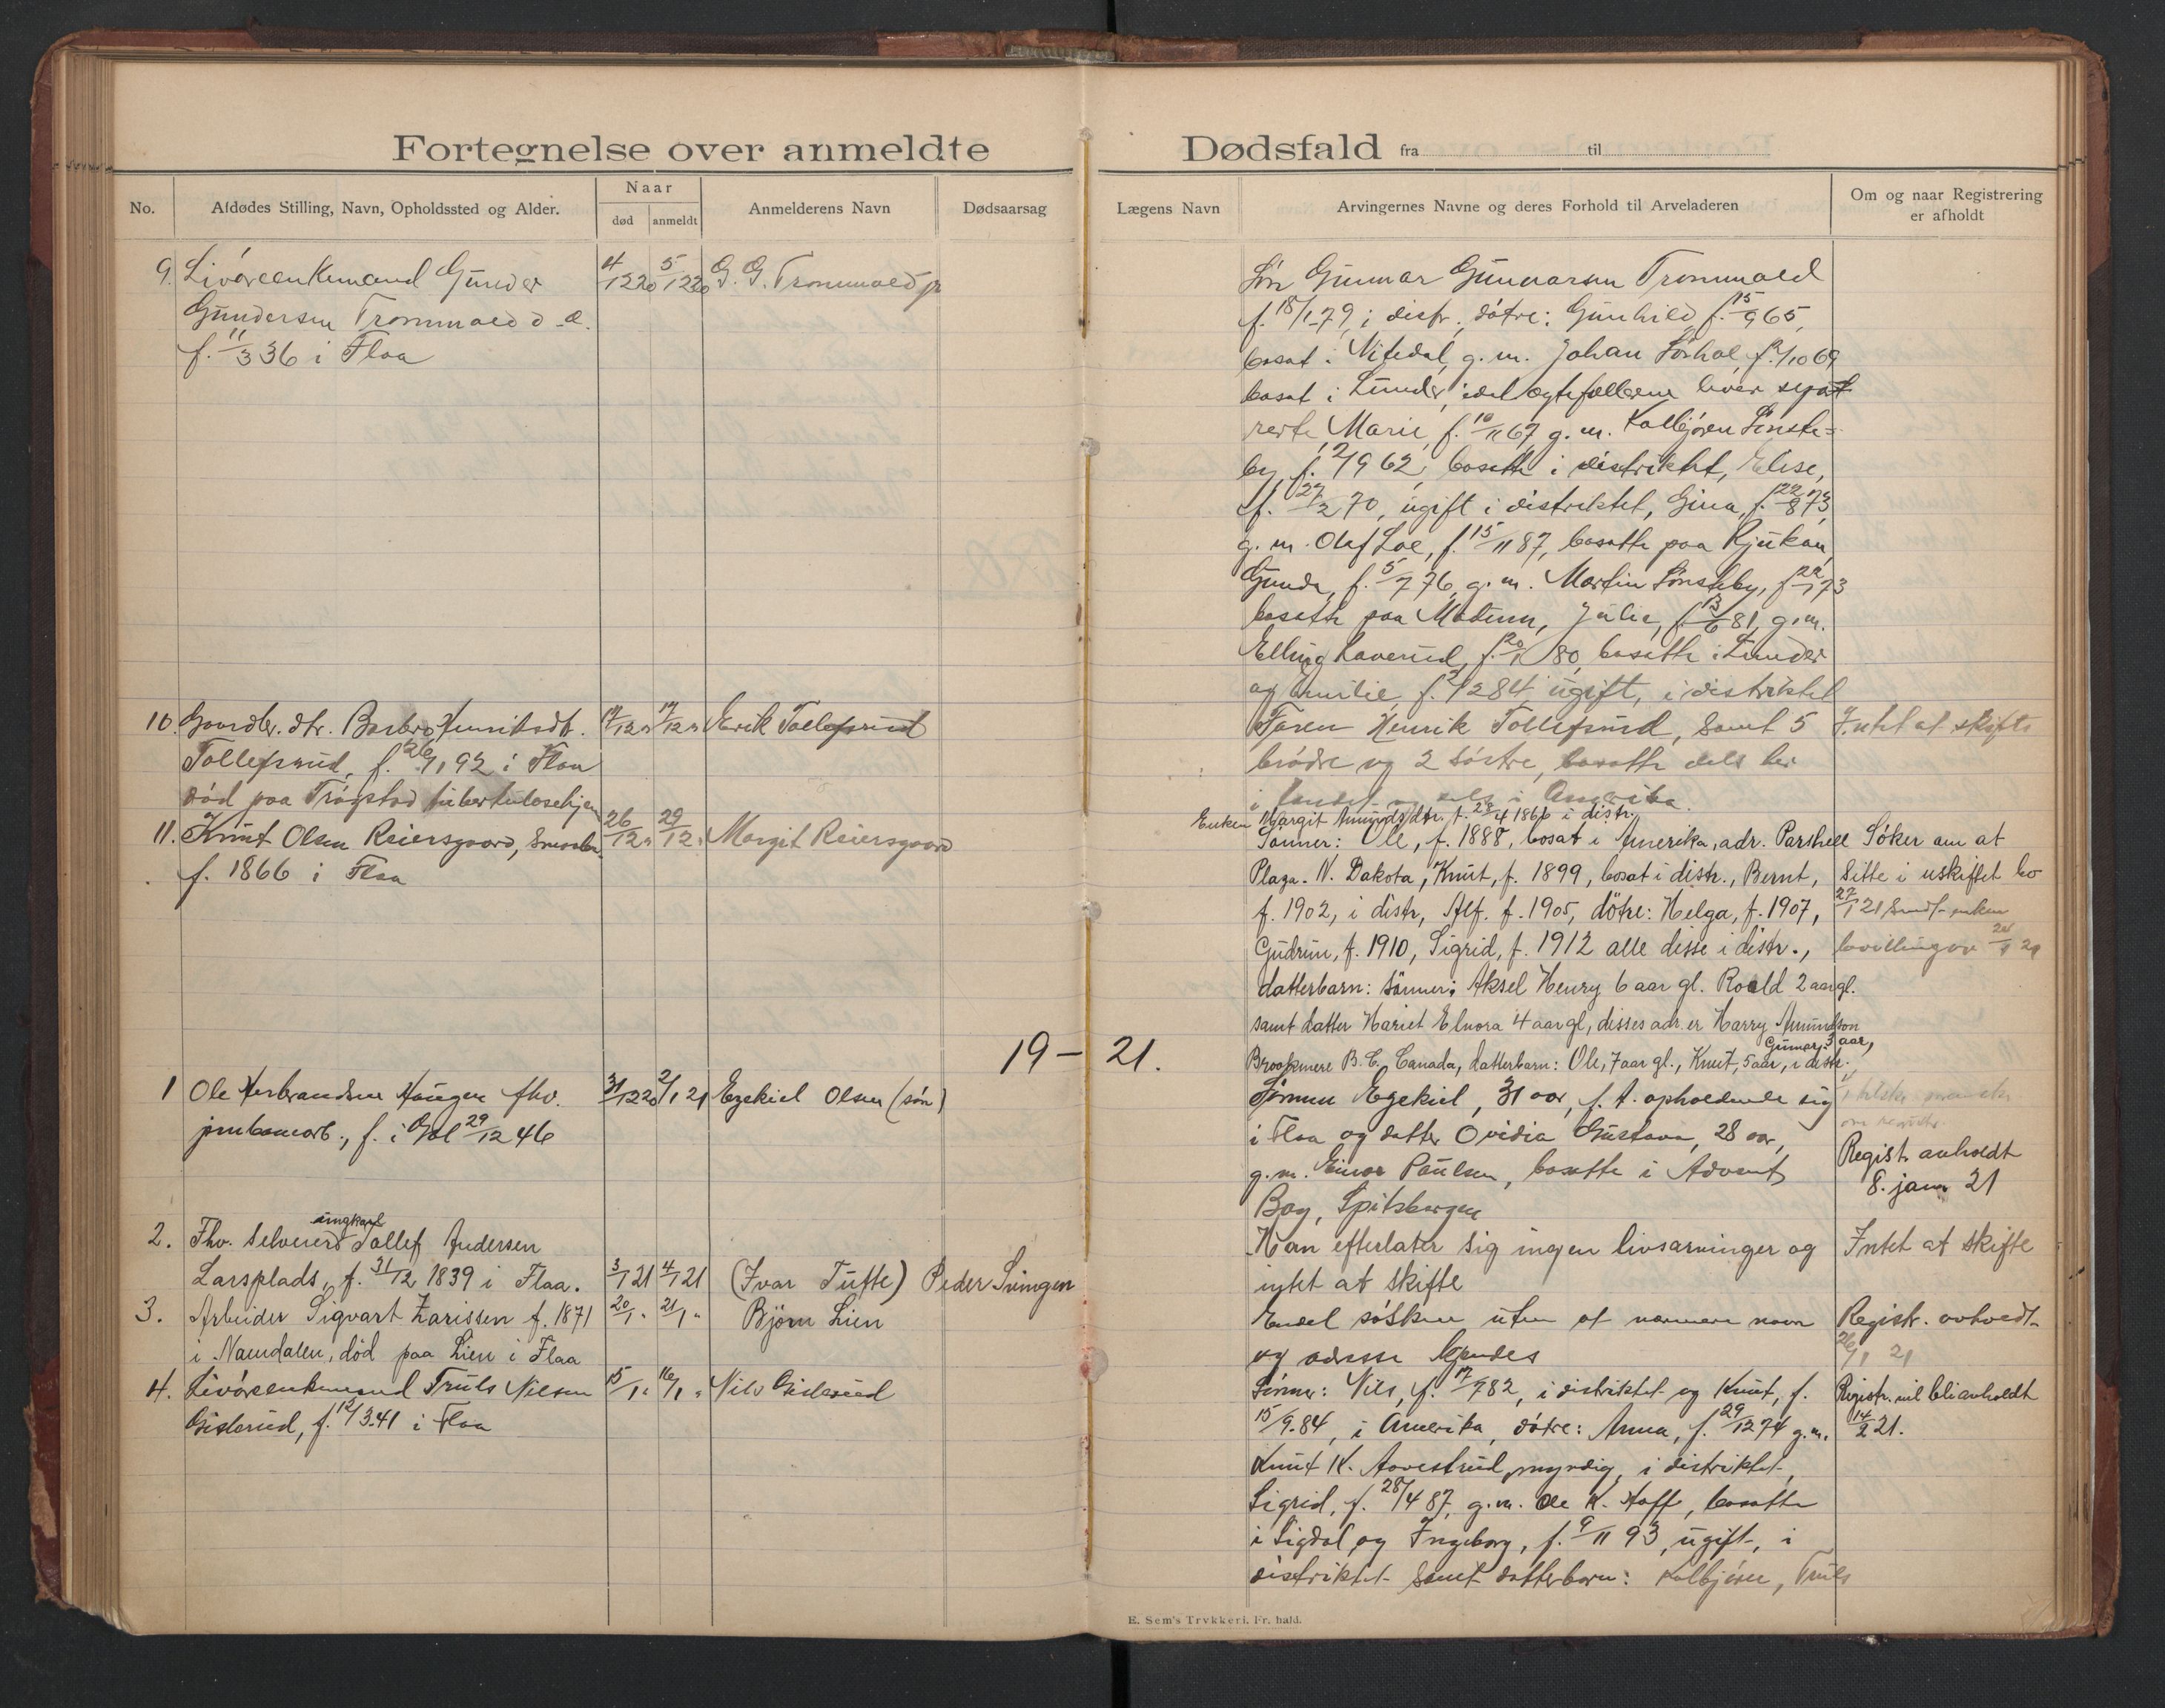 Fortegnelse over anmeldte Dødsfald fra til
No.
Afdødes Stilling, Navn, Opholdssted og Alder.
Naar
død anmeldt
Anmelderens Navn
Dødsaarsag
Lægens Navn
Arvingernes Navne og deres Forhold til Arveladeren
Om og naar Registrering
er afholdt
9. Livøreenkemand Gunder 4/12 20 5/12 20 G. G. Trommald jr
Gundersen Trommald d.æ.
f. 11/3 36 i Flaa
Søn Gunnar Gunnarsen Trommald
f. 18/1 79, i distr., døtre: Gunhild, f. 15/9 65,
bosat i Nitedal, g. m. Johan Sørhol, f. 2/10 69
bosat i Lunder, idet ægtefællerne lever sepa-
rerte, Marie, f. 10/11 67, g. m. Kolbjørn Sønste=
by, f. 2/9 62, bosatte i distriktet, Elise,
f. 27/2 70, ugift i distriktet, Gina, f. 22/8 73,
g. m. Olaf Loe, f. 15/11 87, bosatte paa Rjukan,
Gunda, f. 5/7 76, g. m. Martin Sønsteby, f. 22/1 73
bosatte paa Modum, Julie, f. 13/6 81, g. m.
Elling Laverud, f. 20/1 80, bosatte i Lunder
og Emilie, f. 2/12 84 ugift, i distriktet
10. Gaardbr. dtr. Barbro Henriksdt. 17/12 " 17/12 " Erik Tollefsrud
Tollefsrud, f. 26/1 92 i Flaa
død paa Trøgstad tuberkulosehjem
Faren Henrik Tollefsrud, samt 5
brødre og 2 søstre, bosatte dels her
i landet og dels i Amerika.
Intet at skifte
11. Knut Olsen Reiersgaard, 26/12 " 29/12 " Margit Reiersgaard
f. 1866 i Flaa
Enken Margit Amundsdtr. f. 23/4 1866 i distr.
Sönner: Ole, f. 1888, bosat i Amerika, adr. Parshell
Plaza. N. Dakota, Knut, f. 1899, bosat i distr., Bernt,
f. 1902, i distr, Alf. f. 1905, dötre: Helga, f. 1907,
Gudrun, f. 1910, Sigrid, f. 1912 alle disse i distr.,
datterbarn: sönner: Aksel Henry 6 aar gl. Roald 2 aar gl.
samt datter Hariet Elnora 4 aar gl, disses adr. er Harry Amundson
Brookmere B. C. Canada, datterbarn: Ole, 7 aar gl., Knut, 5 aar, Gunnar, 3 aar, i distr.
Søker om at
sitte i uskiftet bo
27/1 21 Sendt enken
bevillingen
19 — 21.
1 Ole Herbrandsen Haugen fhv. 31/12 20 2/1 21 Ezekiel Olsen (søn)
jernbanearb., f. i Gol 29/12 46
Sønnen Ezekiel, 31 aar, f. t. opholdende sig
i Flaa og datter Ovidia Gustava, 28 aar,
g. m. Einar Paulsen, bosatte i Advent
Bay, Spitsbergen
Regist. avholdt
8. jan 21
2. Fhv. selveierungkarl Tollef Andersen
Larsplads, f. 31/12 1839 i Flaa. 3/1 21 4/1 21 (Ivar Tufte) Peder Svingen
Han efterlater sig ingen livsarvinger og
intet at skifte
Intet at skifte
3. Arbeider Sigvart Zarissen f. 1871 20/1 " 21/1 " Björn Lien
i Namdalen, död paa Lien i Flaa
Endel søsken uten at nærmere navn
og adresse kjendes
Registr. avholdt
26/1 21
4. Livøreenkemand Truls Nilsen 15/1 " 16/1 " Nils Gislerud
Gislerud, f. 12/3 41 i Flaa
Sønner: Nils, f. 17/7 82, i distriktet og Knut, f.
15/9 84, i Amerika, døtre: Anna, f. 29/12 74 g. m.
Knut K. Aavestrud, myndig, i distriktet,
Sigrid, f. 28/4 87, g. m. Ole K. Hoff, bosatte
i Sigdal og Ingeborg, f. 9/11 93, ugift, i
distriktet samt datterbarn: Kolbjørn, Truls
Registr. vil bli avholdt
14/2 21.
E. Sem's Trykkeri. Fr. hald.